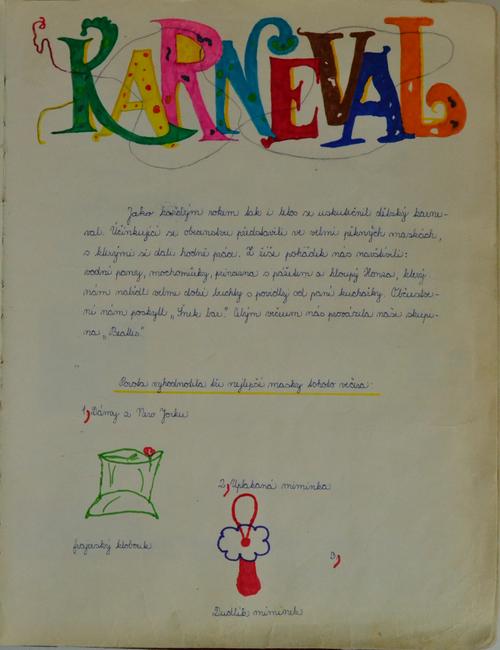 KARNEVAL
Jako každým rokem tak i letos se uskutečnil dětský karne-
val. Účinkující se obecenstvu představili ve velmi pěkných maskách,
s kterými si dali hodně práce. Z říše pohádek nás navštívili:
vodní panny, mochomůrky, princezna s pážetem a hloupý Honza, který
nám nabídl velmi dobré buchty s povidly od paní kuchařky. Občerstve-
ní nám poskytl „Snek bar". Celým večerem nás provázela naše skupi-
na „Beatles"
Porota vyhodnotila tři nejlepší masky tohoto večera:
1, Dámy z New Yorku
2, Uplakaná miminka
frajerský klobouk
3,
Dudlík miminek